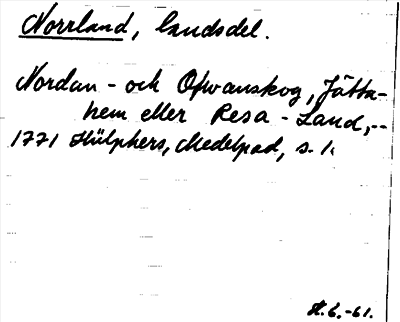 Norrland, landsdel.
Nordan- och Ofwanskog, Jätta-
hem eller Resa-Land,--
1771 Hülphers, Medelpad, s. 1.
H.G.-61.